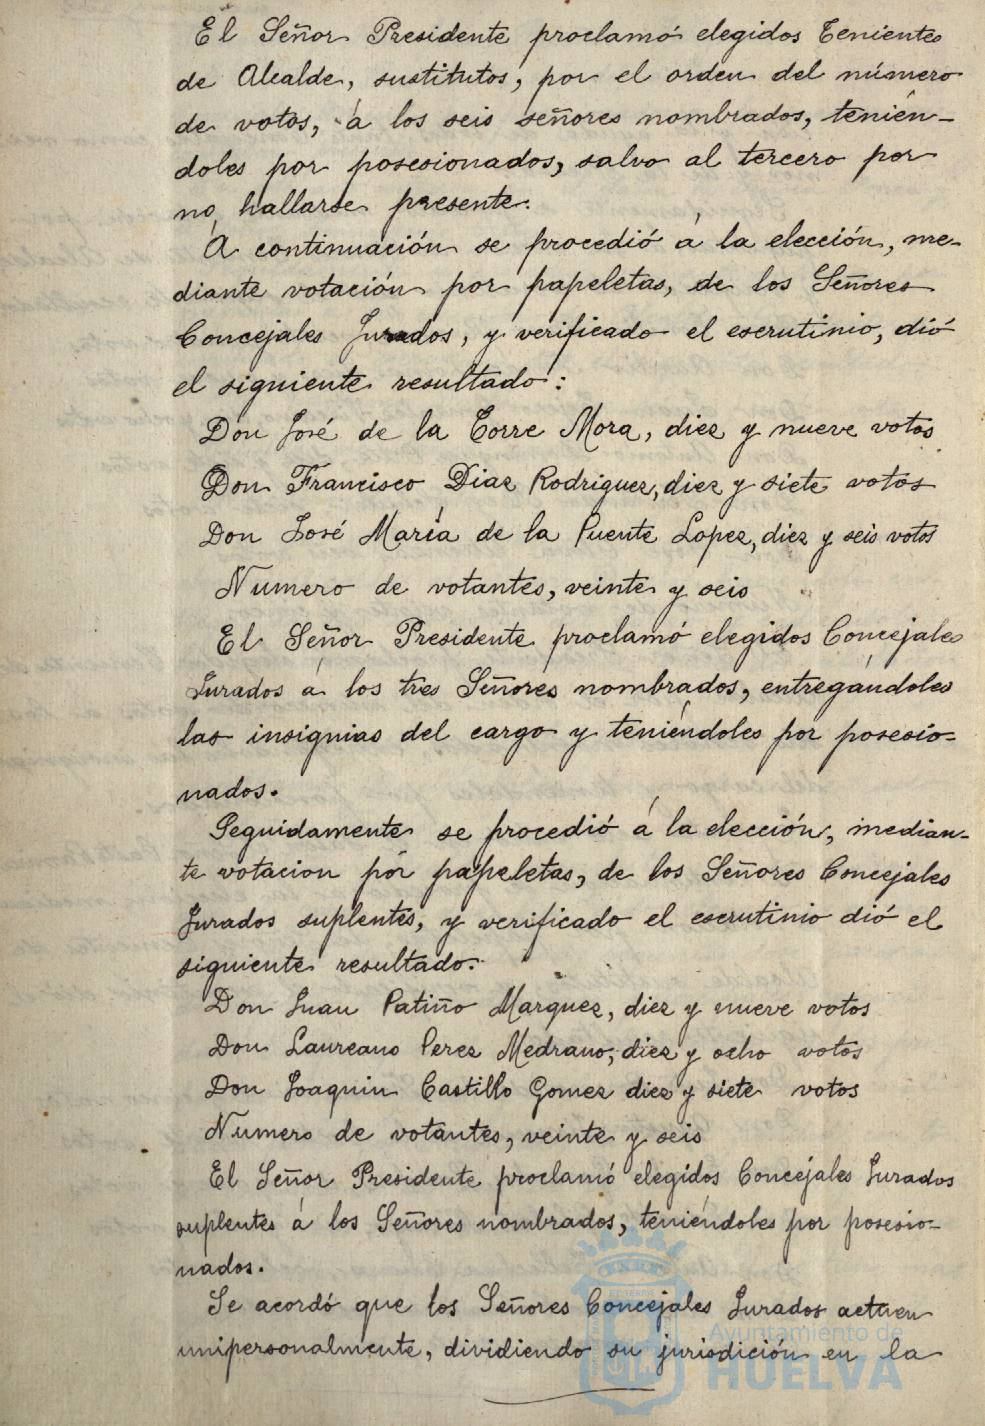 El Señor Presidente proclamó elegidos Tenientes
de Alcalde, sustitutos, por el orden del número
de votos, á los seis señores nombrados, tenién-
doles por posesionados, salvo al tercero por
no hallarse presente.
A continuación se procedió á la elección, me-
diante votación por papeletas, de los Señores
Concejales Jurados, y verificado el escrutinio, dió
el siguiente resultado:
Don José de la Torre Mora, diez y nueve votos
Don Francisco Diaz Rodriguez, diez y siete votos
Don José María de la Puente Lopez, diez y seis votos
Numero de votantes, veinte y seis
El Señor Presidente proclamó elegidos Concejales
Jurados á los tres Señores nombrados, entregándoles
las insignias del cargo y teniéndoles por posesio-
nados.
Seguidamente se procedió á la elección, median-
te votacion por papeletas, de los Señores Concejales
Jurados suplentes, y verificado el escrutinio dió el
siguiente resultado:
Don Juan Patiño Marquez, diez y nueve votos
Don Laureano Perez Medrano, diez y ocho votos
Don Joaquin Castillo Gomez diez y siete votos
Numero de votantes, veinte y seis
El Señor Presidente proclamó elegidos Concejales Jurados
suplentes á los Señores nombrados, teniéndoles por posesio-
nados.
Se acordó que los Señores Concejales Jurados actuen
unipersonalmente, dividiendo su jurisdición en la
Ayuntamiento de
HUELVA